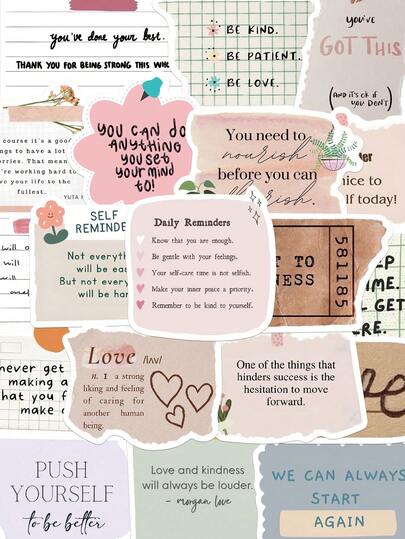 you've done your best.
THANK YOU FOR BEING STRONG THIS WH
BE KIND.
BE PATIENT.
BE LOVE.
you've
GOT THIS
(AND it's OK if
you DON'T)
course it's a good
ngs to have a lot
orries. That mean
're working hard to
ve your life to the
fullest.
YUTA
YOU CAN DO
ANYTHING
YOU SET
YOUR MIND
TO!
You need to
nourish
before you can
flourish.
nice to
lf today!
SELF
REMINDE
Not everyth
will be ea
But not every
will be ha
Daily Reminders
Know that you are enough.
Be gentle with your feelings.
Your self-care time is not selfish.
Make your inner peace a priority.
Remember to be kind to yourself.
T TO
NESS
581185
EP
IME.
GET
RE.
will
will
never get
making a
that you f
make
Love /lʌv/
n. 1 a strong
liking and feeling
of caring for
another human
being.
One of the things that
hinders success is the
hesitation to move
forward.
PUSH
YOURSELF
to be better
Love and kindness
will always be louder.
- morgan love
WE CAN ALWAYS
START
AGAIN